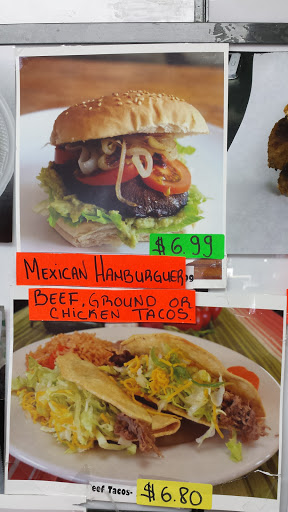 $6.99
MEXICAN HAMBURGUER
BEEF, GROUND OR
CHICKEN TACOS.
eef Tacos- $6.80